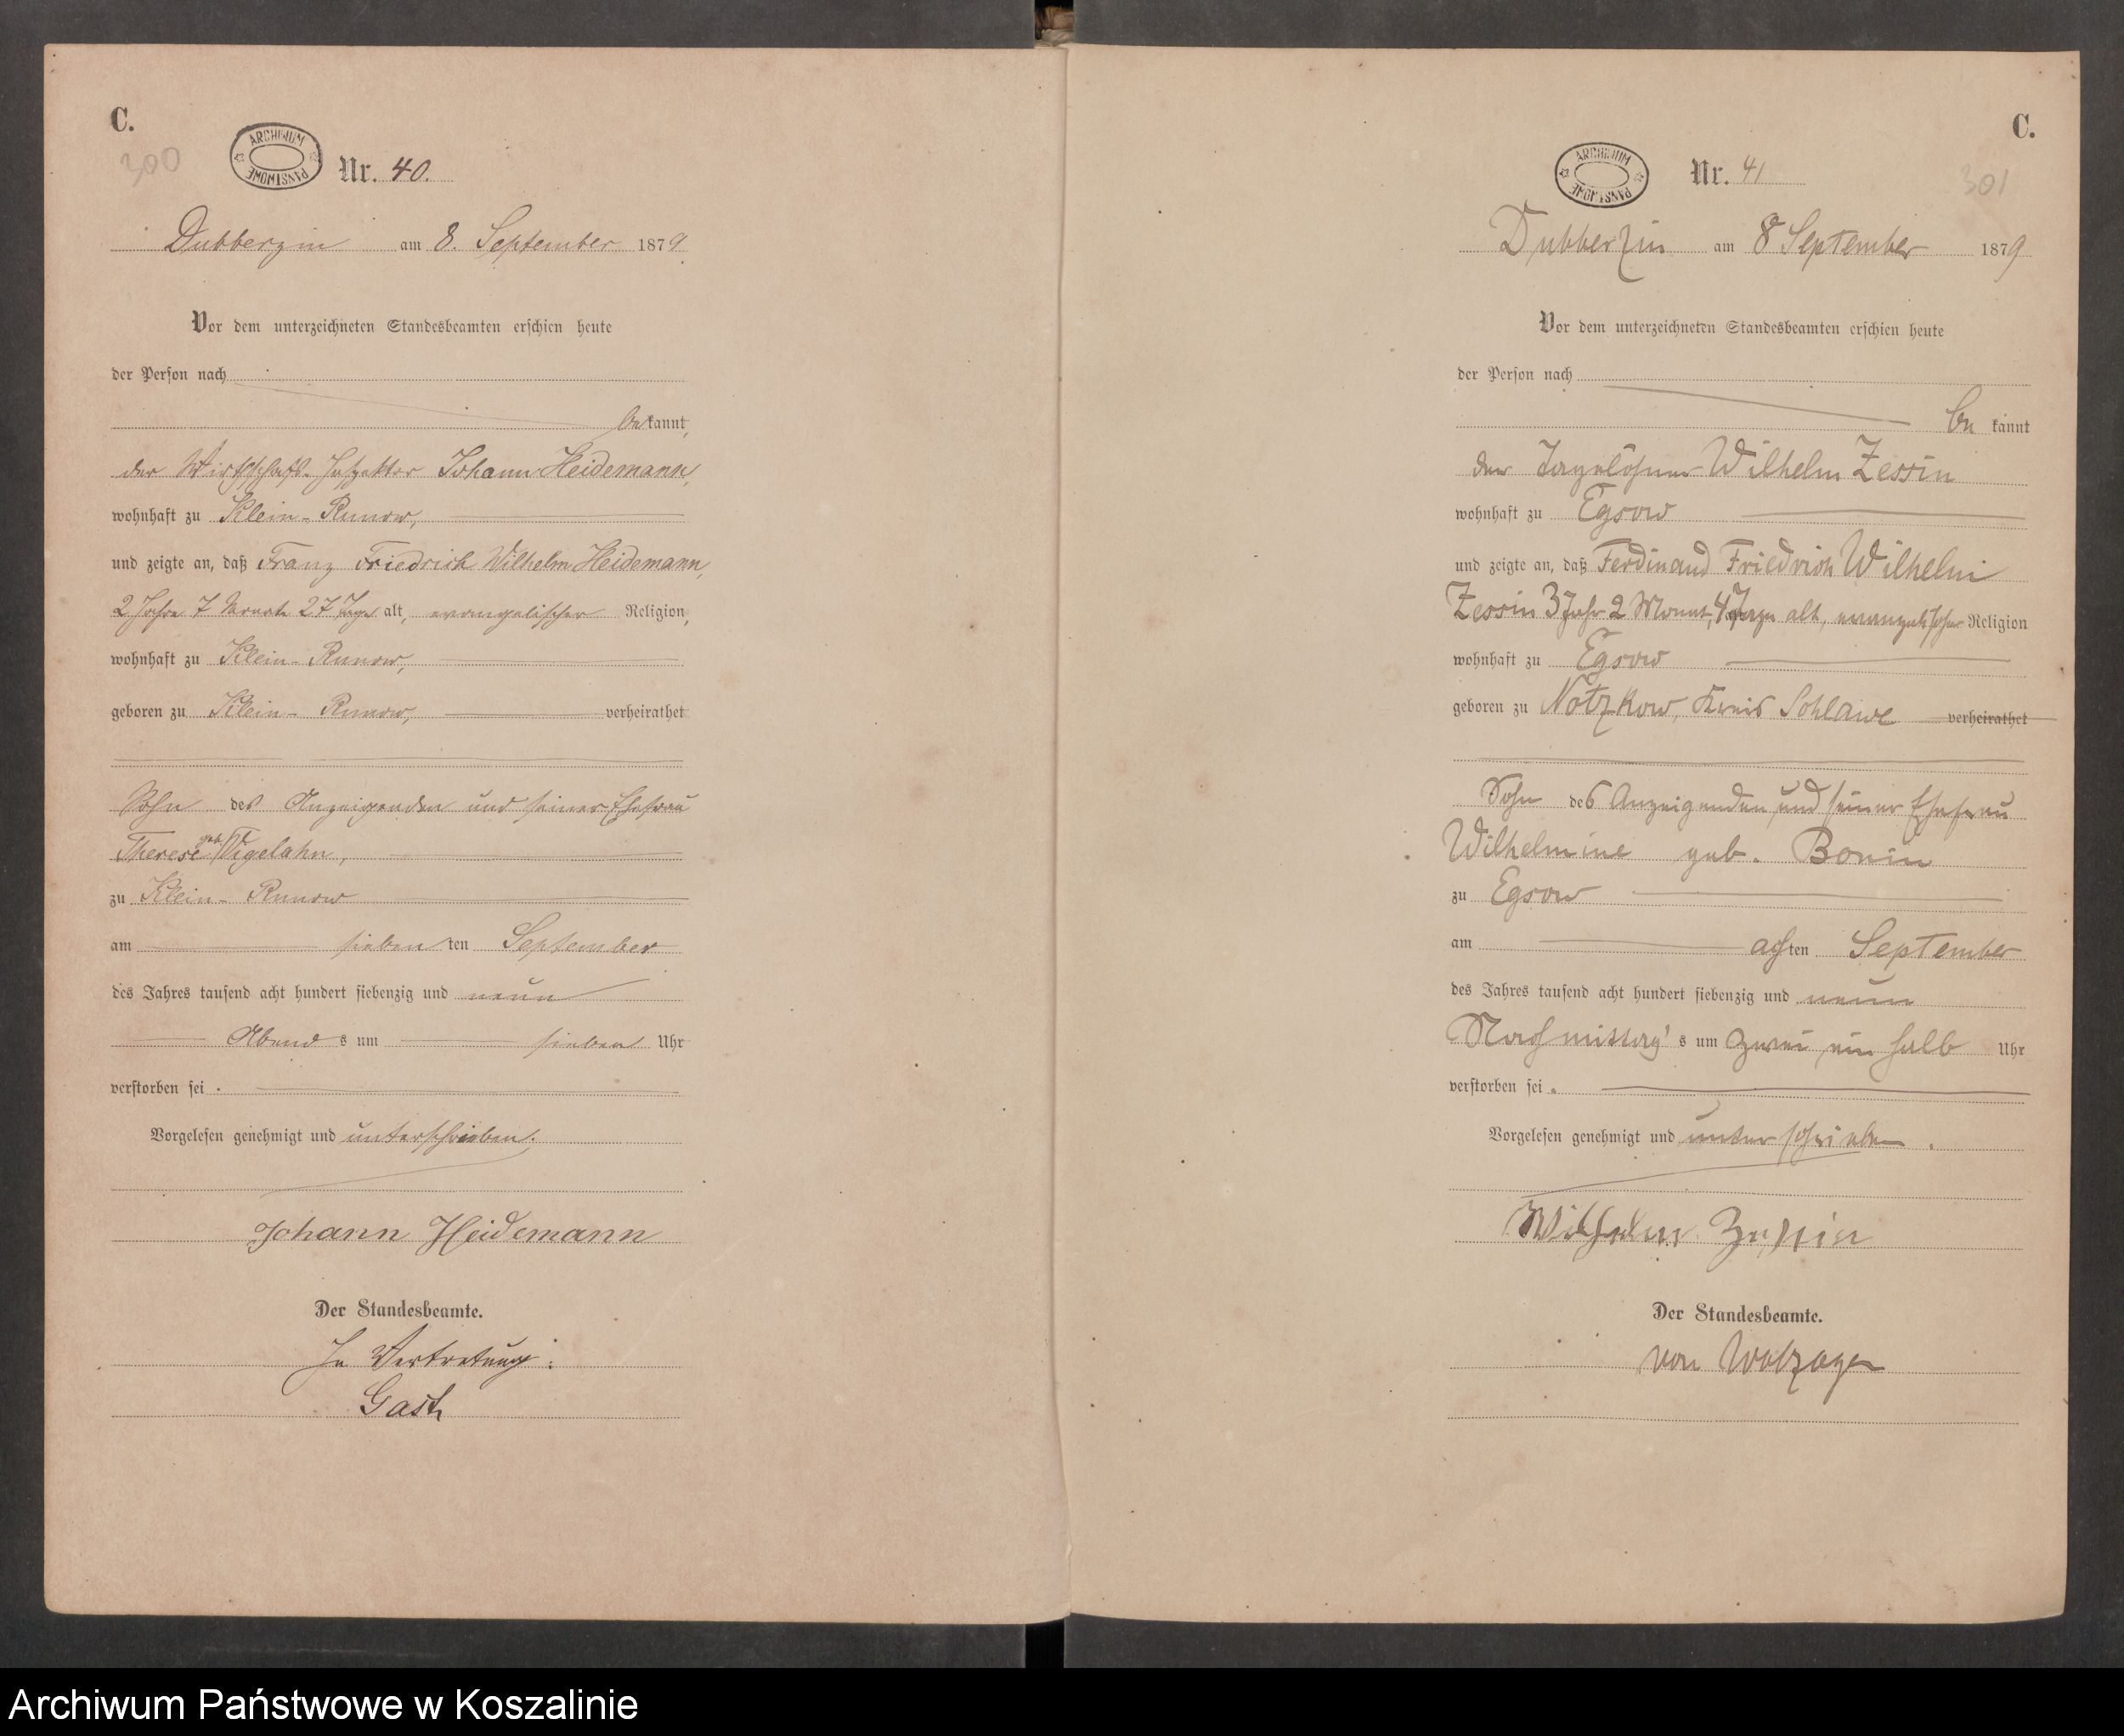 C.
300
ARCHIWUM PAŃSTWOWE
Nr. 40.
Dubberzin am 8. September 1879
Vor dem unterzeichneten Standesbeamten erschien heute
der Person nach
bekannt,
der Wirthschafts-Inspektor Johann Heidemann,
wohnhaft zu Klein-Runow,
und zeigte an, daß Franz Friedrich Wilhelm Heidemann,
2 Jahre 7 Monate 27 Tage alt, evangelischer Religion,
wohnhaft zu Klein-Runow,
geboren zu Klein-Runow, verheirathet
Sohn des Anzeigenden und seiner Ehefrau
Therese geb. Vigelahn,
zu Klein-Runow
am siebenten September
des Jahres tausend acht hundert siebenzig und neun
Abends um sieben Uhr
verstorben sei.
Vorgelesen genehmigt und unterschrieben.
Johann Heidemann
Der Standesbeamte.
In Vertretung:
Gast
C.
301
ARCHIWUM PAŃSTWOWE
Nr. 41
Dubberzin am 8 September 1879
Vor dem unterzeichneten Standesbeamten erschien heute
der Person nach
bekannt
der Tagelöhner Wilhelm Zessin
wohnhaft zu Egsow
und zeigte an, daß Ferdinand Friedrich Wilhelm
Zessin 3 Jahr 2 Monat, 4 Tage alt, evangelischer Religion
wohnhaft zu Egsow
geboren zu Notzkow, Kreis Schlawe verheirathet
Sohn des Anzeigenden und seiner Ehefrau
Wilhelmine geb. Bonin
zu Egsow
am achten September
des Jahres tausend acht hundert siebenzig und neun
Nachmittags um zwei ein halb Uhr
verstorben sei.
Vorgelesen genehmigt und unterschrieben.
Wilhelm Zessin
Der Standesbeamte.
von Wolzogen
Archiwum Państwowe w Koszalinie